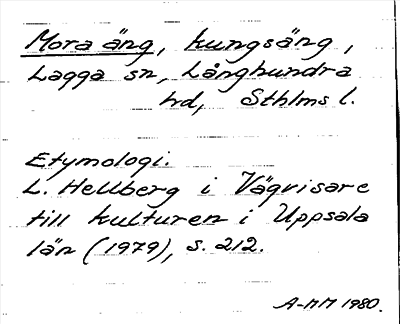 Mora äng, kungsäng,
Lagga sn, Långhundra
hd, Sthlms l.
Etymologi.
L. Hellberg i Vägvisare
till kulturen i Uppsala
län (1979), s. 212.
A-MM 1980.